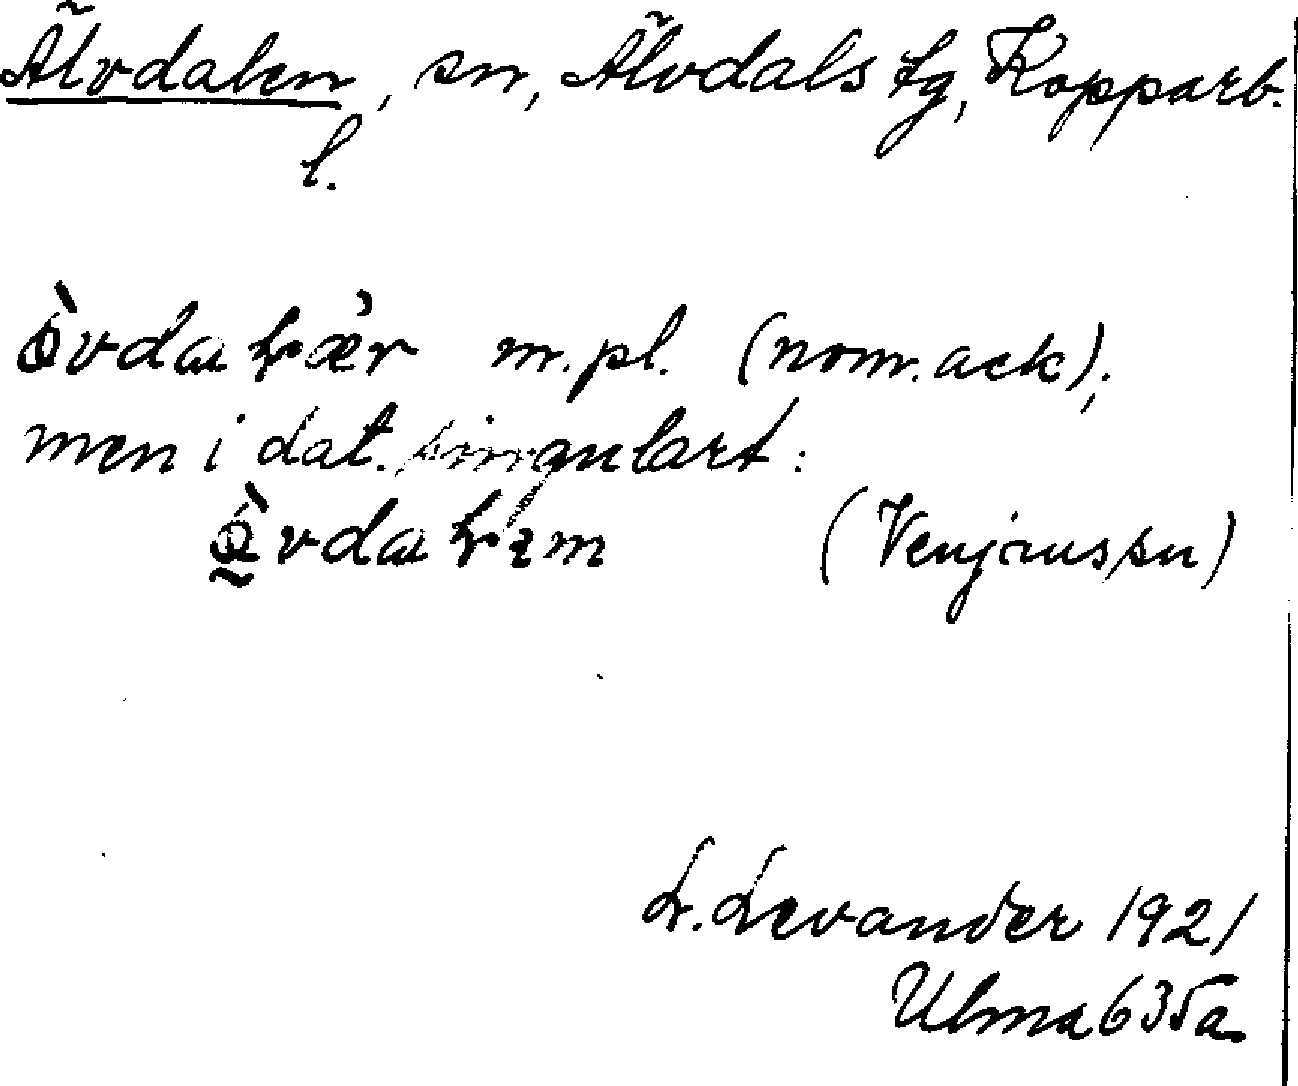 Älvdalen, sn, Älvdals tg, Kopparb.
l.
m.pl. (nom. ack);
men i dat. singulart:
(Venjanssn)
L. Levander 1921
Ulma 635a